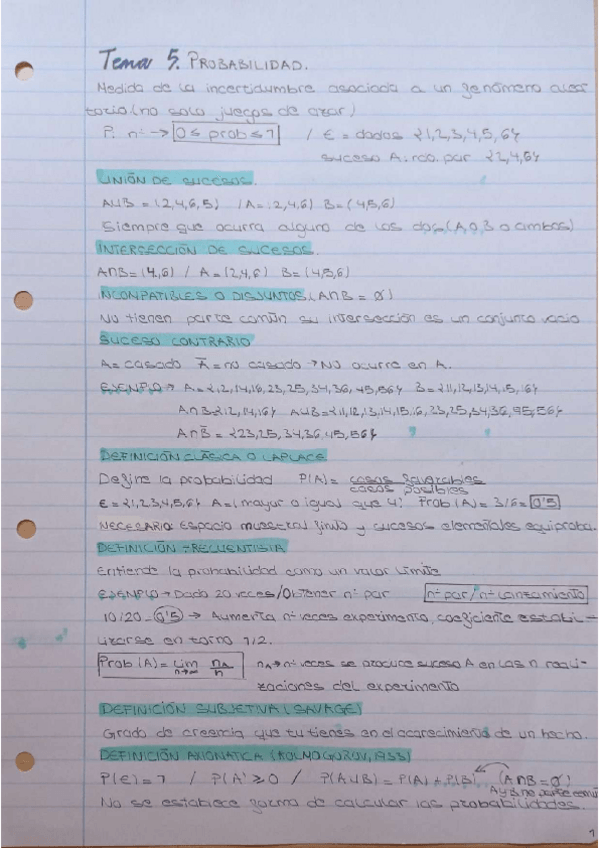 Tema 5. PROBABILIDAD.
Medida de la incertidumbre asociada a un fenómeno alea
torio (no solo juegos de azar)
P. nº → 0 ≤ prob ≤ 1 / E = dados {1,2,3,4,5,6}
suceso A: rdo. par {2,4,6}
UNIÓN DE SUCESOS.
AUB = (2,4,6,5) / A = (2,4,6) B = (4,5,6)
Siempre que ocurra alguno de los dos (A o B o ambos)
INTERSECCIÓN DE SUCESOS.
A∩B = (4,6) / A = (2,4,6) B = (4,5,6)
INCOMPATIBLES O DISJUNTOS (A∩B = Ø)
No tienen parte común su intersección es un conjunto vacío
SUCESO CONTRARIO
A = casado Ā = no casado → No ocurre en A.
EJEMPLO → A = {12,14,16,23,25,34,36,45,56} B = {11,12,13,14,15,16}
A∩B {12,14,16} AUB = {11,12,13,14,15,16,23,25,34,36,45,56}
A∩B̄ = {23,25,34,36,45,56}
DEFINICIÓN CLÁSICA O LAPLACE
Define la probabilidad P(A) = casos favorables
casos posibles
E = {1,2,3,4,5,6} A = (mayor o igual que 4) Prob (A) = 3/6 = 0'5
NECESARIO: espacio muestral finito y sucesos elementales equiproba.
DEFINICIÓN FRECUENTISTA
Entiende la probabilidad como un valor límite
EJEMPLO → Dado 20 veces/Obtener nº par nº par/nº lanzamiento
10/20 = 0'5 → Aumenta nº veces experimento, coeficiente estabi-
lizarse en torno 1/2.
Prob (A) = lim n→∞ nA/n nA → nº veces se produce suceso A en las n reali-
zaciones del experimento
DEFINICIÓN SUBJETIVA (SAVAGE)
Grado de creencia que tu tienes en el acarecimiento de un hecho.
DEFINICIÓN AXIOMATICA (KOLMOGOROV, 1933)
P(E) = 1 / P(A) ≥ 0 / P(AUB) = P(A) + P(B) (A∩B = Ø)
A y B no parte común
No se establece forma de calcular las probabilidades.
1